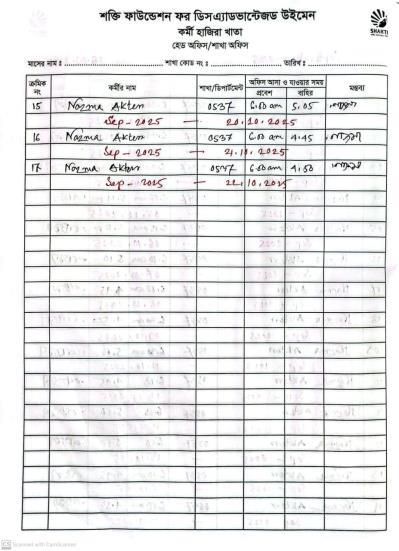 শক্তি ফাউন্ডেশন ফর ডিসএ্যাডভান্টেজড উইমেন
কর্মী হাজিরা খাতা
হেড অফিস/শাখা অফিস
SHAKTI
মাসের নাম : শাখা কোড নং : তারিখ :
ক্রমিক নং কর্মীর নাম শাখা/ডিপার্টমেন্ট অফিস আসা ও যাওয়ার সময় মন্তব্য
প্রবেশ বাহির
15 Nazma Akter 0537 6.00 am 5.05
Sep - 2025 20.10.2025
16 Nazma Akter 0537 6.00 am 4.45
Sep - 2025 21.10.2025
17 Nazma Akter 0537 6.00 am 4.50
Sep - 2025 22.10.2025
CS Scanned with CamScanner